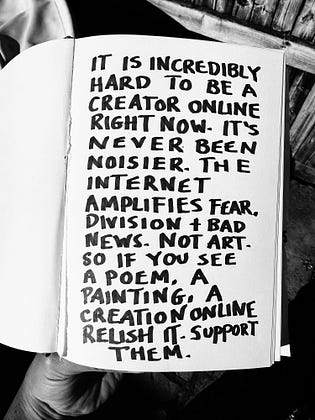 IT IS INCREDIBLY
HARD TO BE A
CREATOR ONLINE
RIGHT NOW. IT'S
NEVER BEEN
NOISIER. THE
INTERNET
AMPLIFIES FEAR,
DIVISION + BAD
NEWS. NOT ART.
SO IF YOU SEE
A POEM, A
PAINTING, A
CREATION ONLINE
RELISH IT. SUPPORT
THEM.